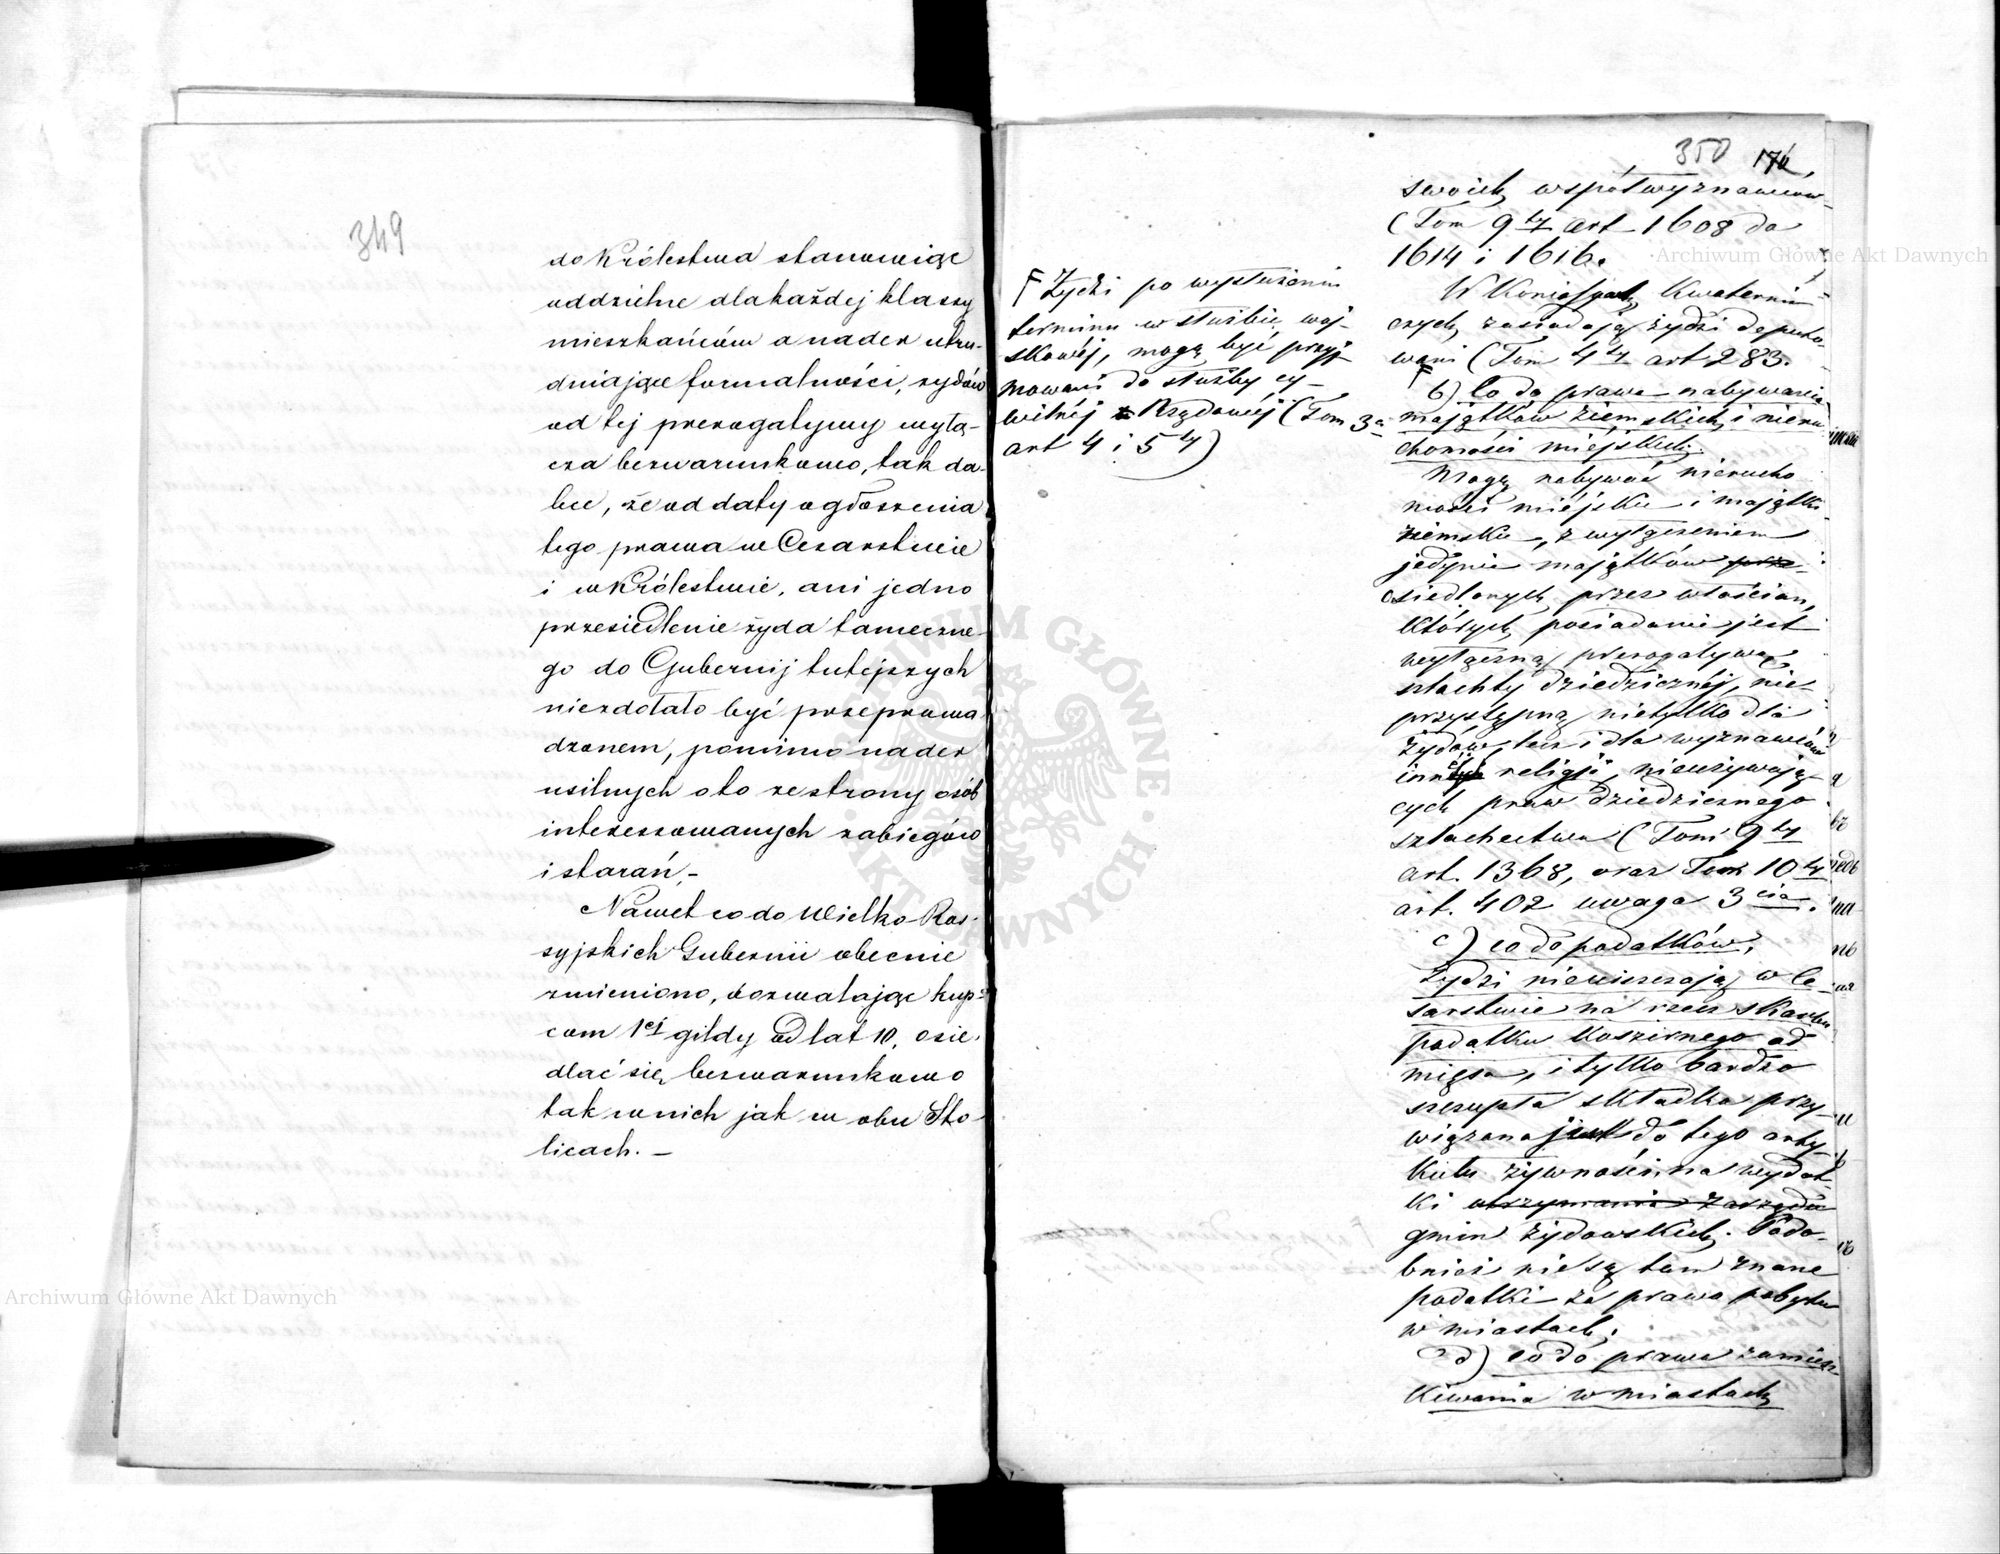 349
do Królestwa stanowiąc
oddzielne dla każdej klassy
mieszkańców a nader utru-
dniające formalności, żydów
od tej prerogatywy wyłą-
cza bezwarunkowo, tak da-
lece, że od daty ogłoszenia
tego prawa w Cesarstwie
i w Królestwie, ani jedno
przesiedlenie żyda tameczne-
go do Gubernij tutejszych
niezdołało być przeprowa-
dzonem, pomimo nader
usilnych oto ze strony osób
interessowanych zabiegów
i starań.-
Nawet co do Wielko Ros-
syjskich Gubernii obecnie
zmieniono, dozwalając kup-
com 1ej gildy od lat 10, osie-
dlać się bezwarunkowo
tak w nich jak w obu Sto-
licach. -
350
swoich współwyznawców
(Tom 9ty art 1608 do
1614 i 1616.
W Kwaterni-
czych zasiadają żydzi deputo-
wani (Tom 4ty art 283.
F
b) Co do prawa nabywania
majątków ziemskich i nieru-
chomości miejskich.
Mogą nabywać nierucho
mości miejskie i majątki
ziemskie, z wyłączeniem
jedynie majątków
osiedlonych przez włościan,
których posiadanie jest
wyłączną prerogatywą
szlachty dziedzicznéj, nie-
przystępną nietylko dla
Żydów, lecz i dla wyznawców
religji, nieużywają-
cych praw dziedzicznego
szlachectwa (Tom 9ty
art. 1368, oraz Tom 10ty
art. 402 uwaga 3cia.
c) co do podatków.
Żydzi nieuiszczają w Ce-
sarstwie na rzecz skarbu
podatku koszernego od
mięsa, i tylko bardzo
szczupła składka przy-
wiązana jest do tego arty-
kułu żywności, na wydat-
ki utrzymania Zarządu
gmin żydowskich. Podo-
bnież nie są tam znane
podatki za prawo pobytu
w miastach.
d) co do prawa zamiesz
kiwania w miastach
F Żydzi po wysłużeniu
terminu w służbie woj-
skowéj, mogą być przyj-
mowani do służby cy-
wilnéj Rządowéj (Tom 3ci
art 4 i 5ty)
Archiwum Główne Akt Dawnych
Archiwum Główne Akt Dawnych
ARCHIWUM GŁÓWNE
AKT DAWNYCH